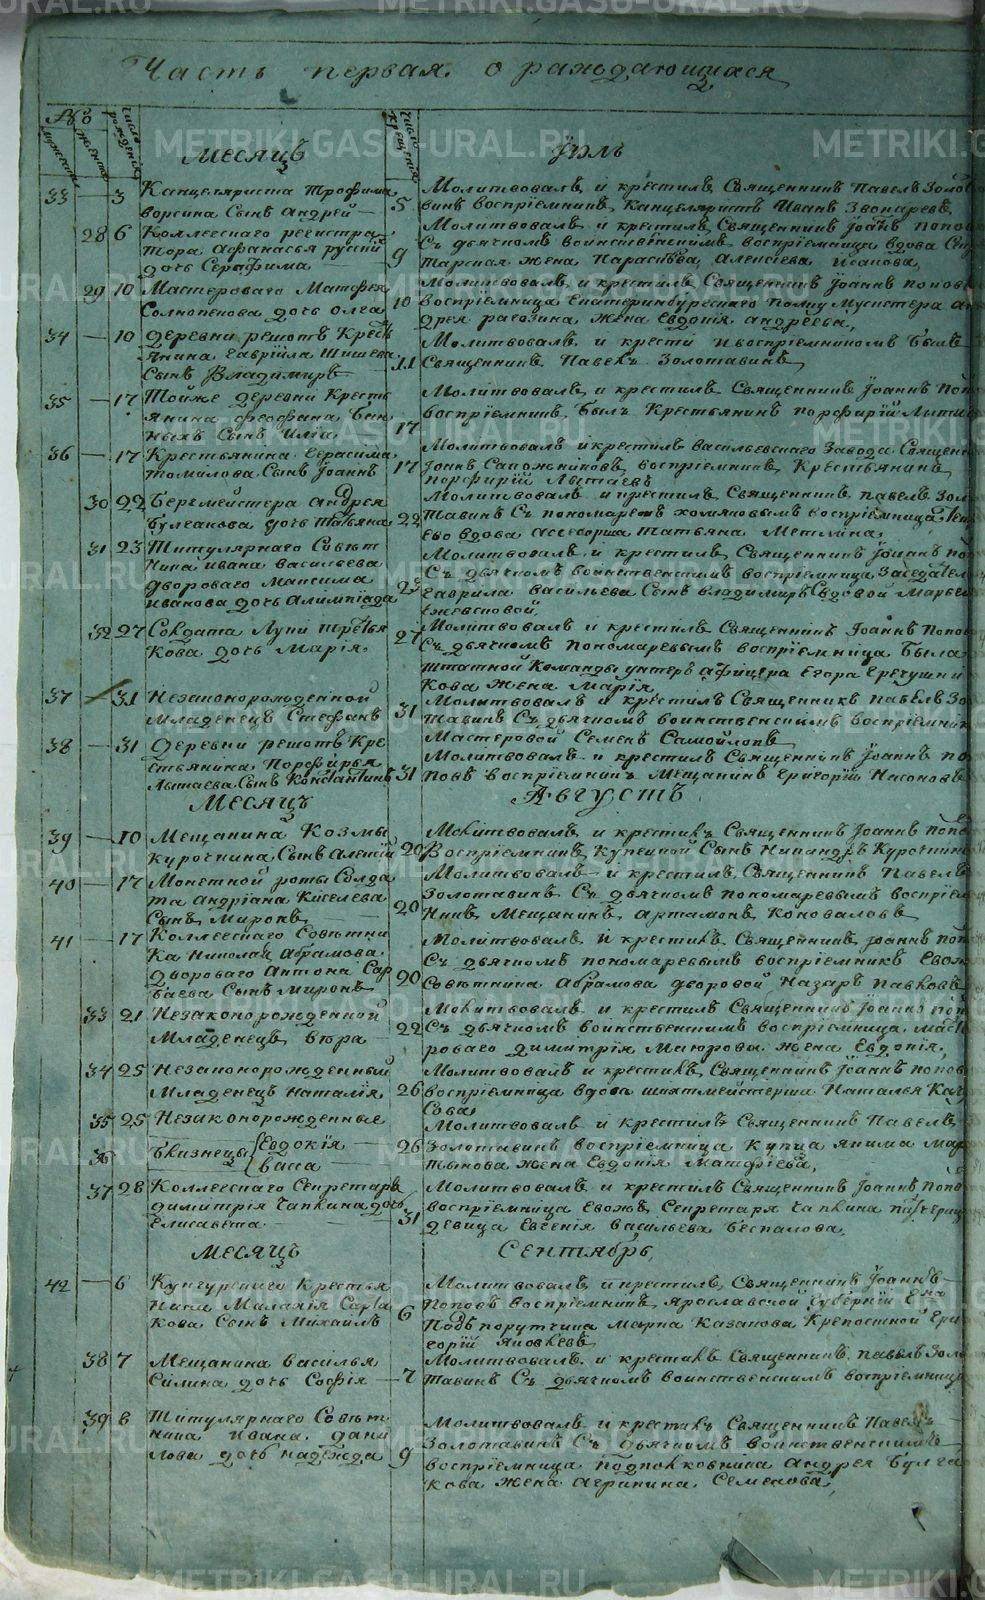 Часть первая. о раждающихся
№
мужеска
женска
число рождения
число крещения
Месяцъ Іюль
33 — 3 Канцеляриста Трофима
ворсина Сынъ Андрей —
5 Молитвовалъ и крестилъ Священникъ Павелъ Золо
винъ воспріемникъ Канцеляристъ Иванъ Звонаревъ
28 6 Коллежскаго регистра
тора Афанасья
дочь Серафима —
9 Молитвовалъ и крестилъ Священникъ Іоаннъ Попов
Съ дьячкомъ воинственскимъ воспріемница вдова
жена Параскева Алексеева
29 10 Мастероваго Матфея
дочь Олга
10 Молитвовалъ и крестилъ Священникъ Іоаннъ Попов
воспріемница Екатеринбургскаго полку
дрея рагозина жена Евдокія андреева,
34 — 10 деревни решотъ Кресть
янина Гавріила Шишева
Сынъ Владимиръ —
11 Молитвовалъ и крести и воспріемникомъ былъ
Священникъ Павелъ Золотавинъ
35 — 17 Тойже деревни Кресть
янина феофана
Сынъ Илія
17 Молитвовалъ и крестилъ Священникъ Іоаннъ Поп
воспріемникъ былъ Крестьянинъ порфирій
36 — 17 Крестьянина Герасима
томилова Сынъ Іоаннъ
17 Молитвовалъ и крестилъ васильевскаго Завода Священн
Іоаннъ Сапожниковъ воспріемникъ Крестьянинъ
порфирій Лытаевъ
30 22 Бергмейстера андрея
Булгакова дочь Татьяна
22 Молитвовалъ и крестилъ Священникъ павелъ Зол
тавинъ Съ пономаремъ хомяковымъ воспріемница
ево вдова ассесорша Татьяна Метлина,
31 23 Титулярнаго Совѣт
ника ивана васильева
двороваго Максима
иванова дочь Алимпіада
25 Молитвовалъ и крестилъ Священникъ Іоаннъ поп
Съ дьячкомъ воинственскимъ воспріемница
Гаврила васильева Сынъ владимиръ
32 27 Солдата Луки третья
кова дочь Марія.
27 Молитвовалъ и крестилъ Священникъ Іоаннъ Попов
Съ дьячкомъ пономаревымъ воспріемница была
штатной Команды унтеръ афицера Егора
кова жена Марія
37 — 31 Незаконорожденной
младенецъ Стефанъ
31 Молитвовалъ и крестилъ Священникъ павелъ Зо
тавинъ Съ дьячкомъ воинственскимъ воспріемник
Мастеровой Семенъ Самойловъ
38 — 31 Деревни решотъ Кре
стьянина Порфирья
Лытаева Сынъ Константинъ
31 Молитвовалъ и крестилъ Священникъ Іоаннъ по
повъ воспріемникъ Мещанинъ Григорій Насоновъ
Месяцъ Августъ
39 — 10 Мещанина Козмы
Курочкина Сынъ Алексій
20 Молитвовалъ и крестилъ Священникъ Іоаннъ Попо
Воспріемникъ Купецкой Сынъ Никандръ Курочкин
40 — 17 Монетной роты Солда
та андріана Киселева
Сынъ Миронъ
20 Молитвовалъ и крестилъ Священникъ Павелъ
Золотавинъ Съ дьячкомъ пономаревымъ воспріем
никъ Мещанинъ Артамонъ Коноваловъ
41 — 17 Коллежскаго Совѣтни
ка Николая Абрамова
двороваго Антона Сар
баева Сынъ Миронъ
20 Молитвовалъ и крестилъ Священникъ Іоаннъ поп
Съ дьячкомъ пономаревымъ воспріемникъ Евож
Совѣтника Абрамова дворовой Назаръ Павловъ
33 21 Незаконорожденной
Младенецъ Вѣра —
22 Молитвовалъ и крестилъ Священникъ Іоаннъ поп
Съ дьячкомъ воинственскимъ воспріемница маст
роваго димитрія Маюрова жена Евдокія,
34 25 Незаконорожденный
Младенецъ Наталія
26 Молитвовалъ и крестилъ Священникъ Іоаннъ попов
воспріемница вдова шихтмейстерша Наталья
Сова
35 25 Незаконорожденные
36 близнецы Евдокія —
Васса —
26 Молитвовалъ и крестилъ Священникъ Павелъ
Золотавинъ воспріемница Купца якима Мар
тынова жена Евдокія Матфіева,
37 28 Коллежскаго Секретаря
димитрія Чапкина дочь
Елисавета —
31 Молитвовалъ и крестилъ Священникъ Іоаннъ Попо
воспріемница Евожъ Секретаря Чапкина
девица Евгенія васильева беспалова,
Месяцъ Сентябрь,
42 — 6 Кунгурскаго Крестья
нина Маланія
кова Сынъ Михаилъ
6 Молитвовалъ и крестилъ Священникъ Іоаннъ
Поповъ воспріемникъ Ярославской губерніи
Подъпорутчика марка Казакова Крепостной Гри
горій Яковлевъ
38 7 Мещанина Василья
Силина дочь Софія —
7 Молитвовалъ и крестилъ Священникъ павелъ Золо
тавинъ Съ дьячкомъ воинственскимъ воспріемница
39 8 Титулярнаго Совѣт
ника Ивана дани
лова дочь надежда
9 Молитвовалъ и крестилъ Священникъ Павелъ
Золотавинъ Съ дьячкомъ воинственскимъ
воспріемница подполковника Андрея Булга
кова жена агрипина Семенова,
METRIKI.GASO-URAL.RU